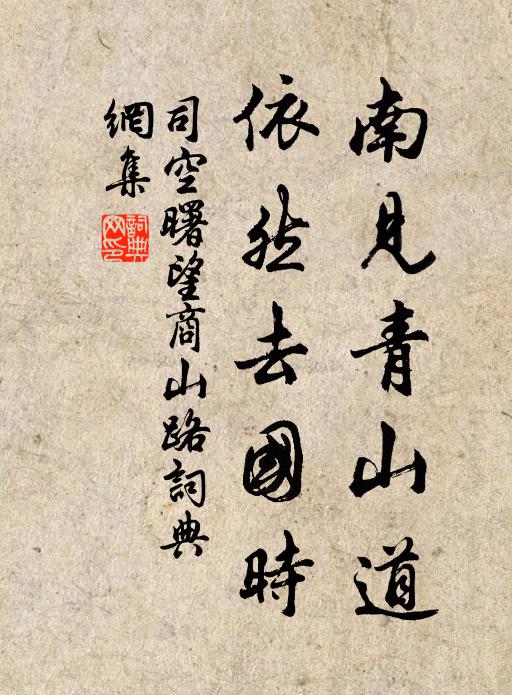 南見青山道
依然去國時
司空曙望商山路詞典
網集
詞典
网印